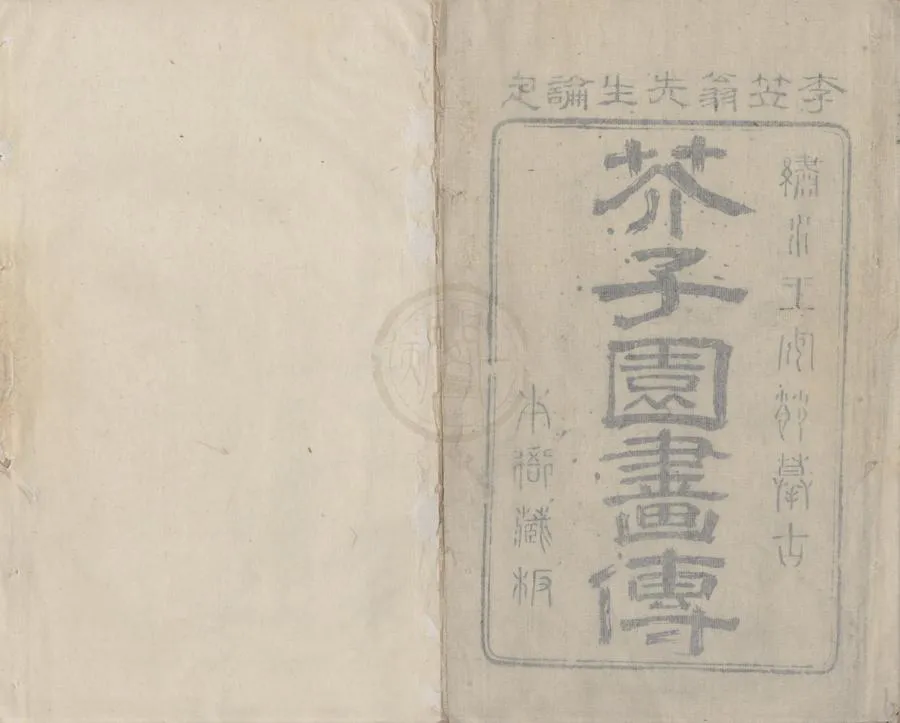 李笠翁先生論定
繡水王安節摹古
芥子園畫傳
本衙藏板